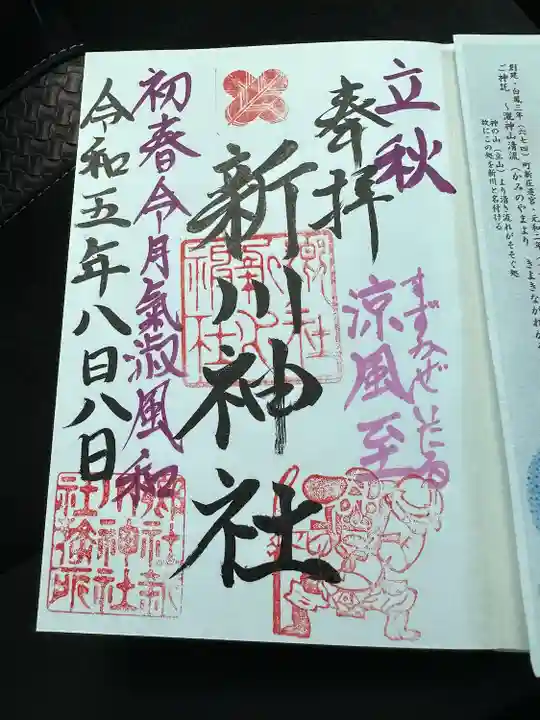 立秋
奉拝
すずかぜいたる
涼風至
新川神社
初春令月氣淑風和
令和五年八日八日
創建・白鳳三年(六七四)町新庄遷宮・元和二年
ご神託 ~瀧神山清流(かみのやまより きよきながれが
神の山(立山)より清き流れがそそぐ処
故にこの処を新川と名付ける